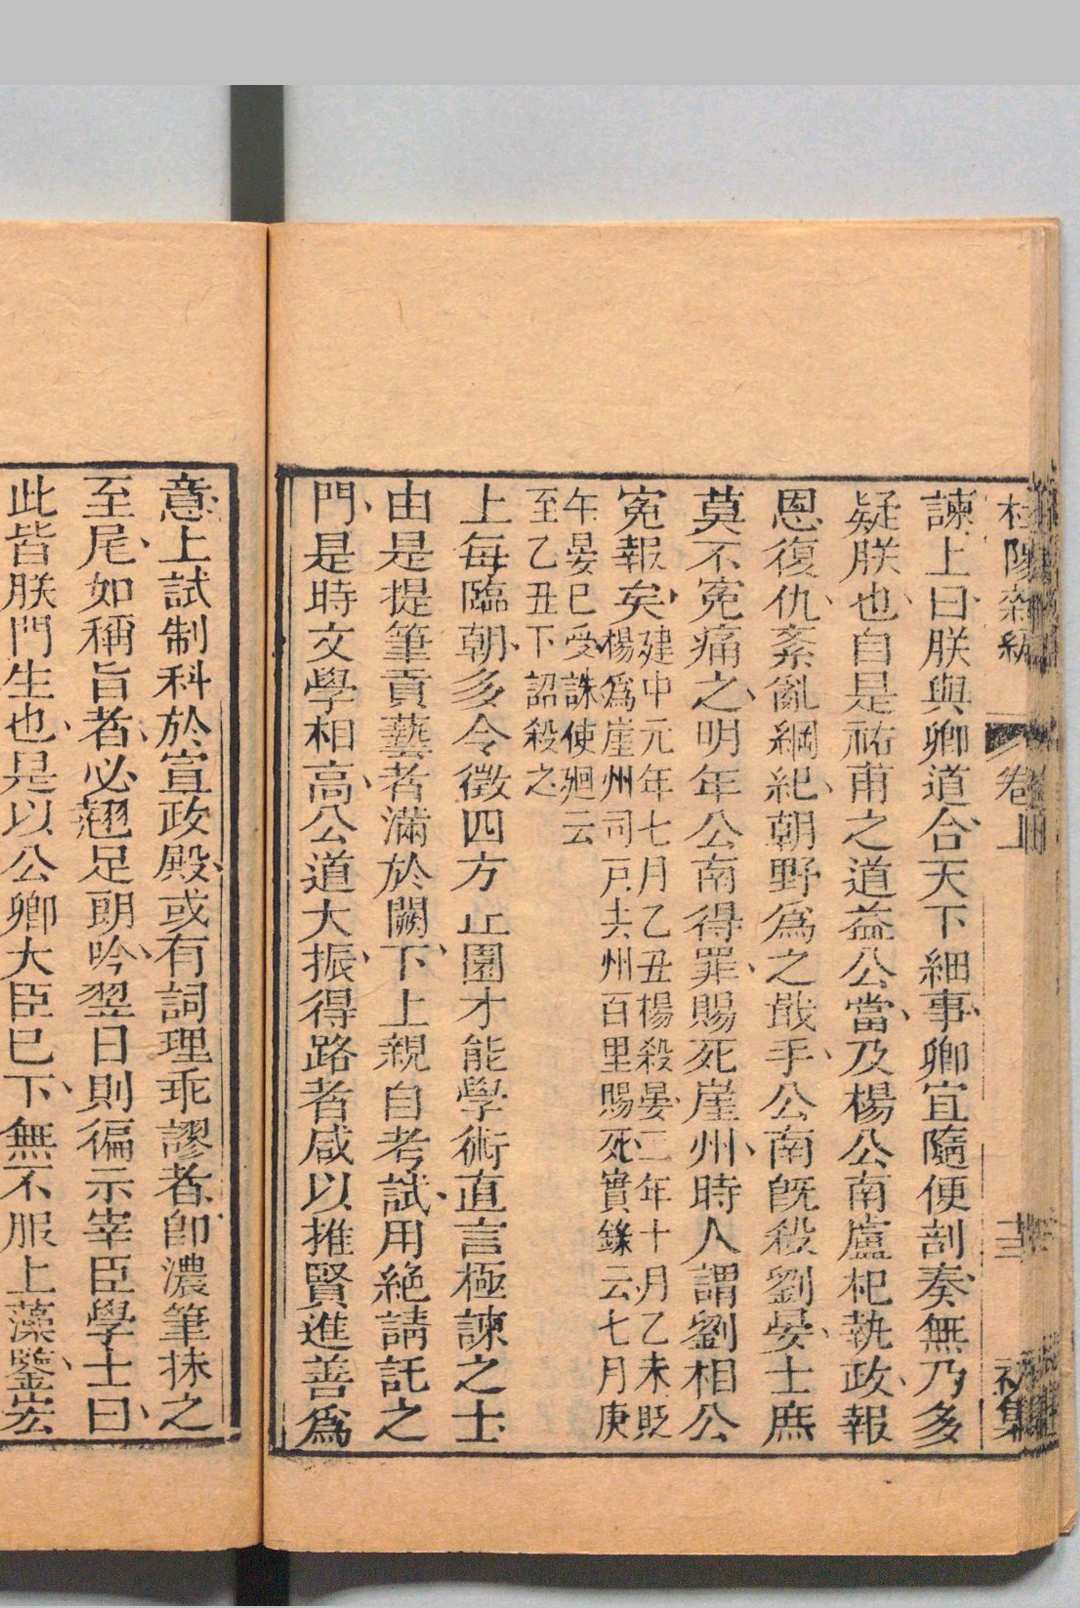 杜陽雜編 卷上 十三 初集
諫上曰朕與卿道合天下細事卿宜隨便剖奏無乃多
疑朕也自是祐甫之道益公當及楊公南盧杞執政報
恩復仇紊亂綱紀朝野爲之戢手公南旣殺劉晏士庶
莫不寃痛之明年公南得罪賜死崖州時人謂劉相公
寃報矣
建中元年七月乙丑楊殺晏二年十月乙未貶
楊爲崖州司戸去州百里賜死實錄云七月庚
午晏已受誅使廻云
至乙丑下詔殺之
上每臨朝多令徵四方丘園才能學術直言極諫之士
由是提筆貢藝者滿於闕下上親自考試用絶請託之
門是時文學相高公道大振得路者咸以推賢進善爲
意上試制科於宣政殿或有詞理乖謬者卽濃筆抹之
至尾如稱旨者必翹足朗吟翌日則徧示宰臣學士曰
此皆朕門生也是以公卿大臣已下無不服上藻鑒宏